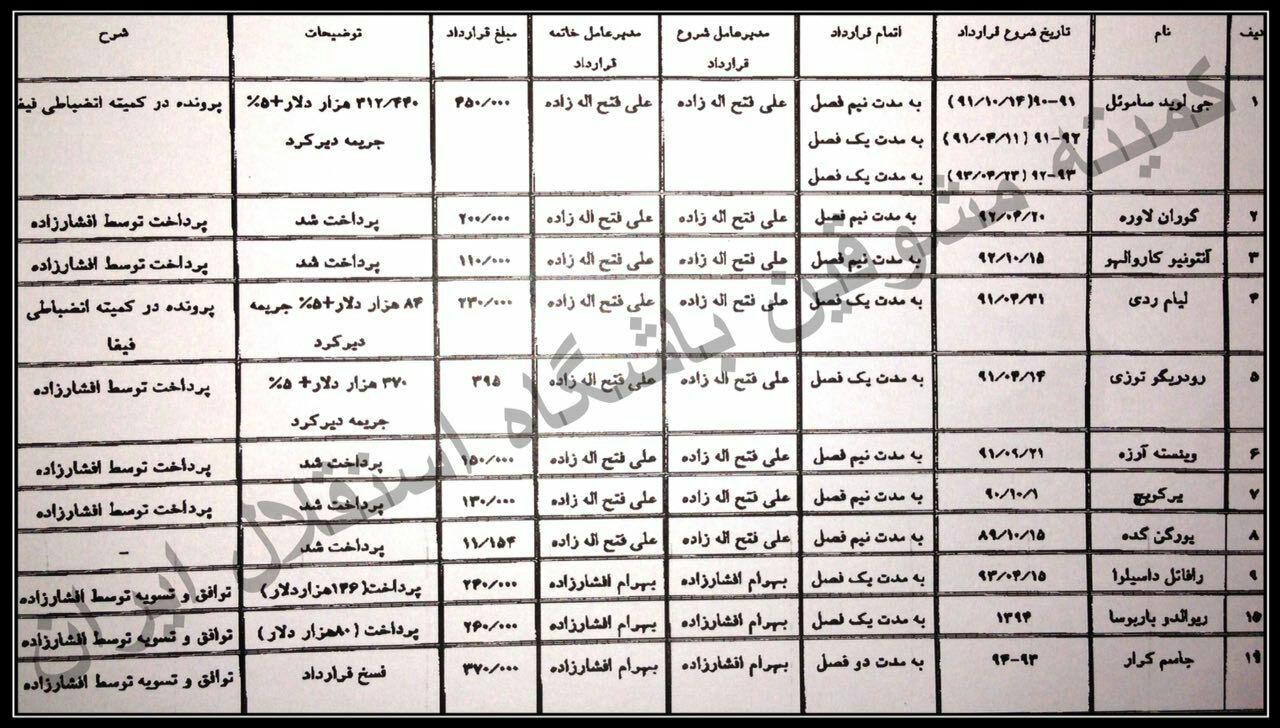 ردیف نام تاریخ شروع قرارداد اتمام قرارداد مدیرعامل شروع قرارداد مدیرعامل خاتمه قرارداد مبلغ قرارداد توضیحات شرح
۱ جی لوید ساموئل ۹۰-۹۱(۹۱/۱۰/۱۴) به مدت نیم فصل علی فتح اله زاده علی فتح اله زاده ۴۵۰/۰۰۰ ۳۱۲/۴۴۰ هزار دلار+۵% پرونده در کمیته انضباطی فیفا
۹۱-۹۲ (۹۱/۰۴/۱۱) به مدت یک فصل جریمه دیرکرد
۹۲-۹۳ (۹۳/۰۴/۲۳) به مدت یک فصل
۲ گوران لاوره ۹۲/۰۴/۲۰ به مدت نیم فصل علی فتح اله زاده علی فتح اله زاده ۲۰۰/۰۰۰ پرداخت شد پرداخت توسط افشارزاده
۳ آنتونیو کاروالهو ۹۲/۱۰/۱۵ به مدت نیم فصل علی فتح اله زاده علی فتح اله زاده ۱۱۰/۰۰۰ پرداخت شد پرداخت توسط افشارزاده
۴ لیام ردی ۹۱/۰۴/۳۱ به مدت یک فصل علی فتح اله زاده علی فتح اله زاده ۲۳۰/۰۰۰ ۸۴ هزار دلار+۵% جریمه پرونده در کمیته انضباطی
دیرکرد فیفا
۵ رودریگو توزی ۹۱/۰۴/۱۴ به مدت یک فصل علی فتح اله زاده علی فتح اله زاده ۳۹۵ ۳۷۰ هزار دلار+ ۵% پرداخت توسط افشارزاده
جریمه دیرکرد
۶ وینسته آرزه ۹۱/۰۹/۲۱ به مدت نیم فصل علی فتح اله زاده علی فتح اله زاده ۱۵۰/۰۰۰ پرداخت شد پرداخت توسط افشارزاده
۷ یرکویچ ۹۰/۱۰/۱ به مدت نیم فصل علی فتح اله زاده علی فتح اله زاده ۱۳۰/۰۰۰ پرداخت شد پرداخت توسط افشارزاده
۸ یورگن گده ۸۹/۱۰/۱۵ به مدت نیم فصل علی فتح اله زاده علی فتح اله زاده ۱۱/۱۵۴ پرداخت شد –
۹ رافائل داسیلوا ۹۳/۰۴/۱۵ به مدت یک فصل بهرام افشارزاده بهرام افشارزاده ۲۴۰/۰۰۰ پرداخت(۱۴۶هزاردلار) توافق و تسویه توسط افشارزاده
۱۵ ریوالدو باربوسا ۱۳۹۴ به مدت یک فصل بهرام افشارزاده بهرام افشارزاده ۲۶۰/۰۰۰ پرداخت (۸۰هزار دلار) توافق و تسویه توسط افشارزاده
۱۹ جاسم کرار ۹۳-۹۴ به مدت دو فصل بهرام افشارزاده بهرام افشارزاده ۳۷۰/۰۰۰ فسخ قرارداد توافق و تسویه توسط افشارزاده
کمیته متوقین باشگاه استقلال ایران